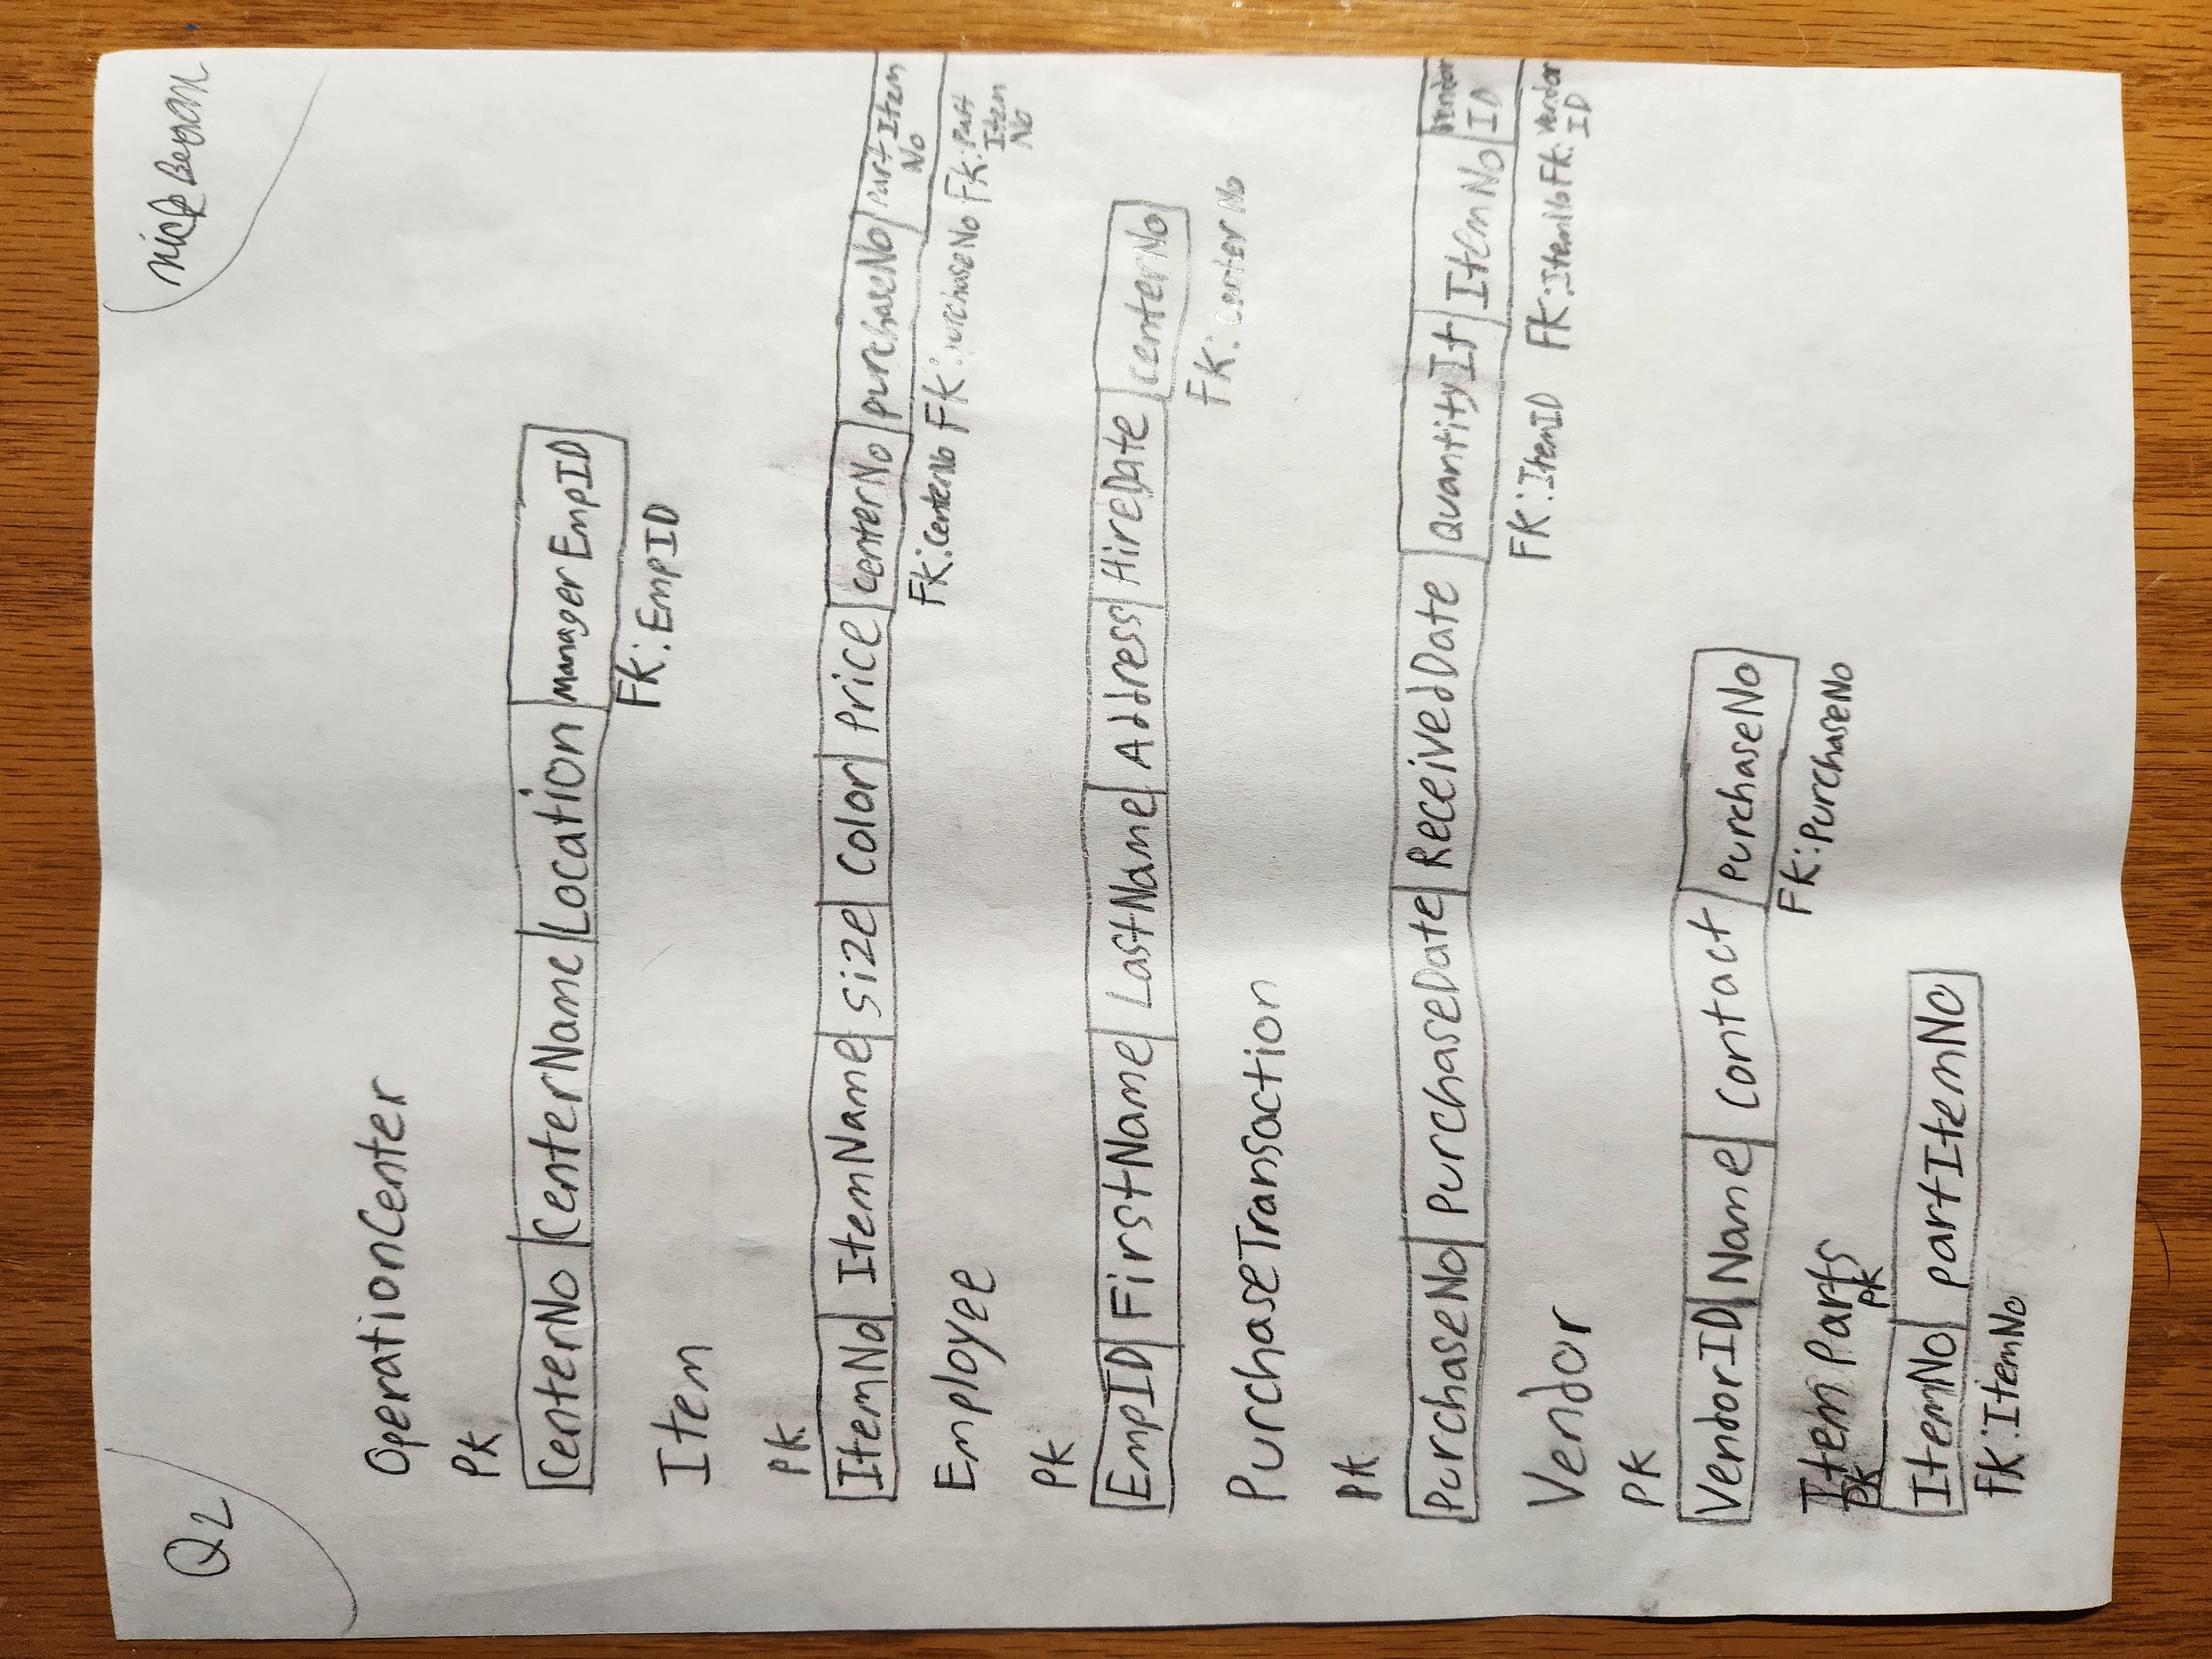 Q2
Nick
OperationCenter
PK
CenterNo CenterName Location Manager EmpID
FK: EmpID
Item
PK
ItemNo ItemName size Color Price centerNo purchaseNo part Item No
FK: CenterNo FK: purchaseNo FK: Part Item No
Employee
PK
EmpID FirstName LastName Address HireDate CenterNo
FK: Center No
PurchaseTransaction
PK
PurchaseNo PurchaseDate ReceivedDate QuantityIt ItemNo Vendor ID
FK: ItemID FK: ItemNo FK: Vendor ID
Vendor
PK
VendorID Name Contact PurchaseNo
FK: PurchaseNo
Item Parts
PK PK
ItemNo partItemNo
FK: ItemNo